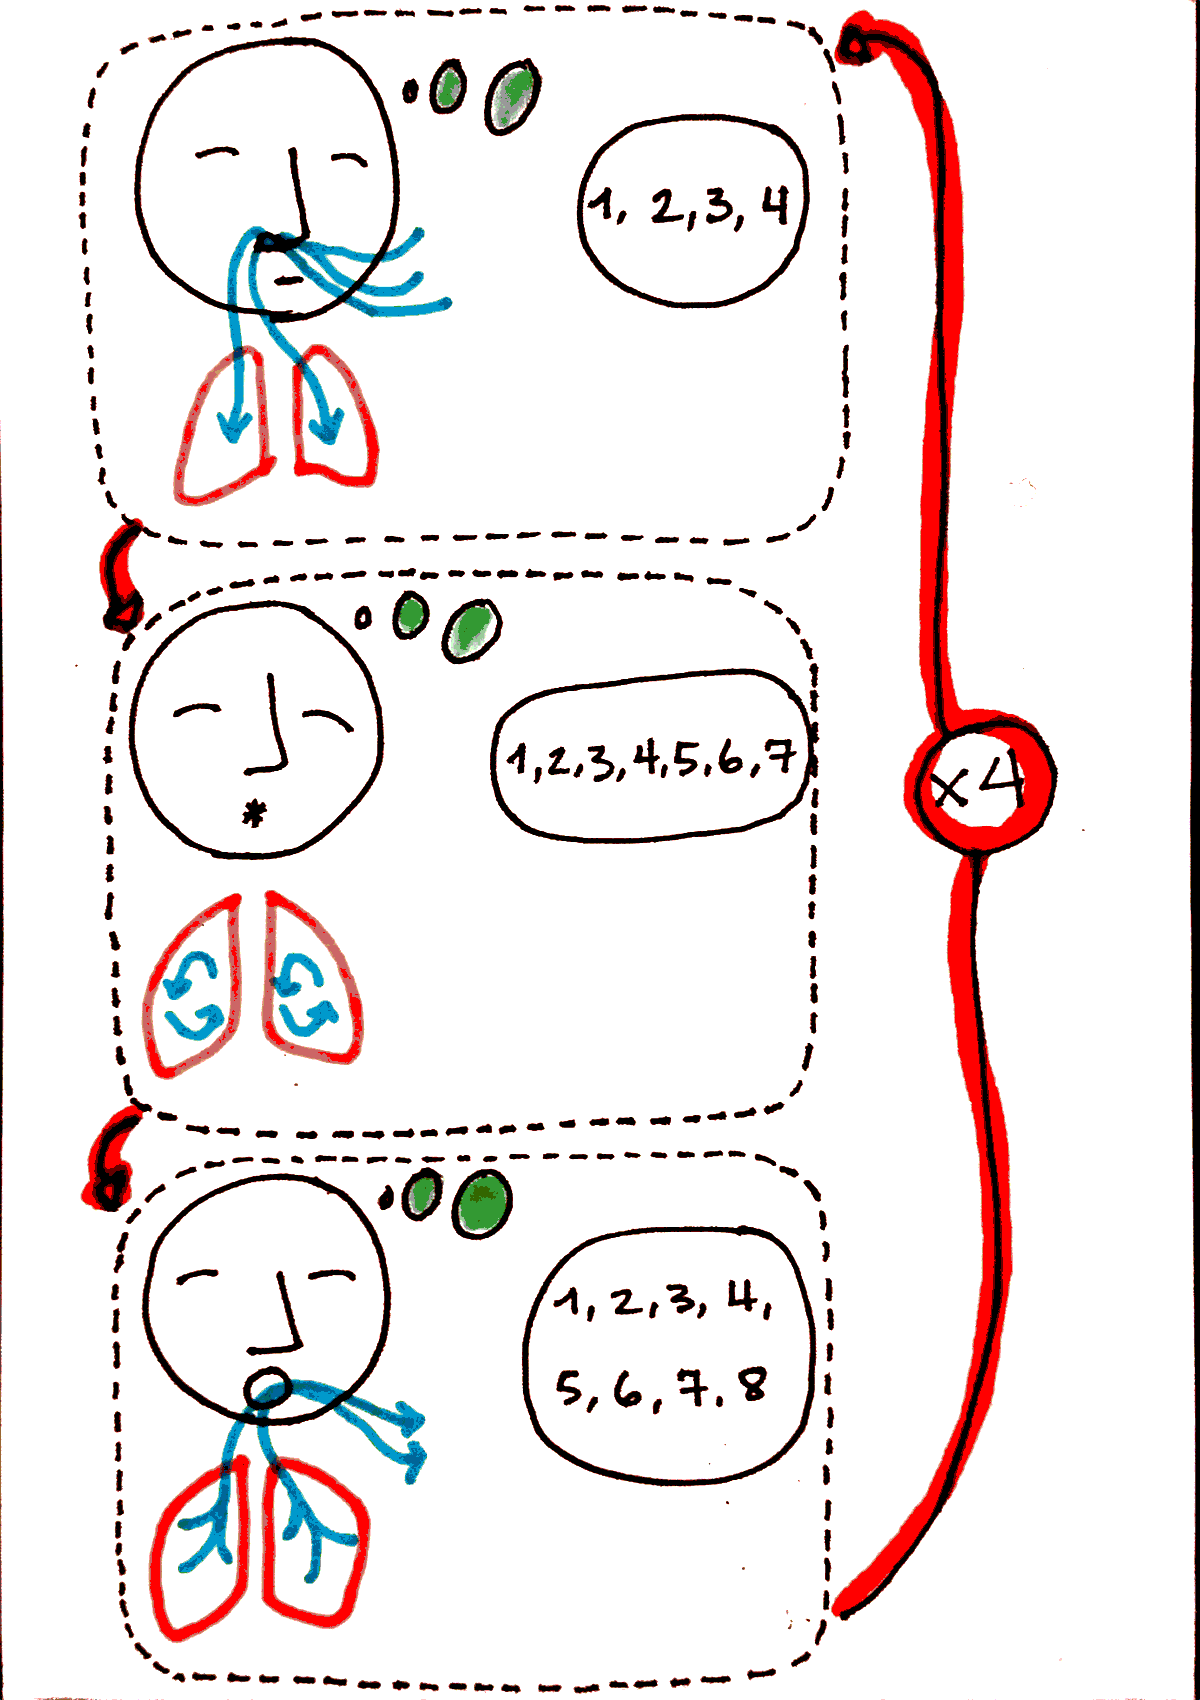 1, 2, 3, 4
1, 2, 3, 4, 5, 6, 7
x 4
1, 2, 3, 4,
5, 6, 7, 8